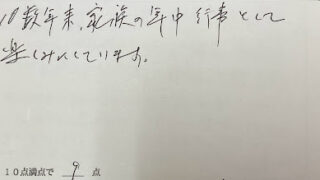 10数年来、家族の年中行事として
楽しみにしています。
10点満点で 9 点